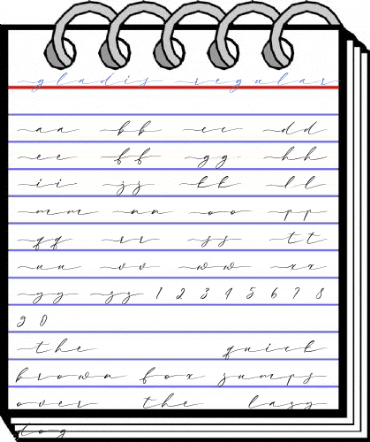 gladis regular
aa bb cc dd
ee ff gg hh
ii jj kk ll
mm nn oo pp
qq rr ss tt
uu vv ww xx
yy zz 1 2 3 4 5 6 7 8
9 0
the quick
brown fox jumps
over the lazy
dog